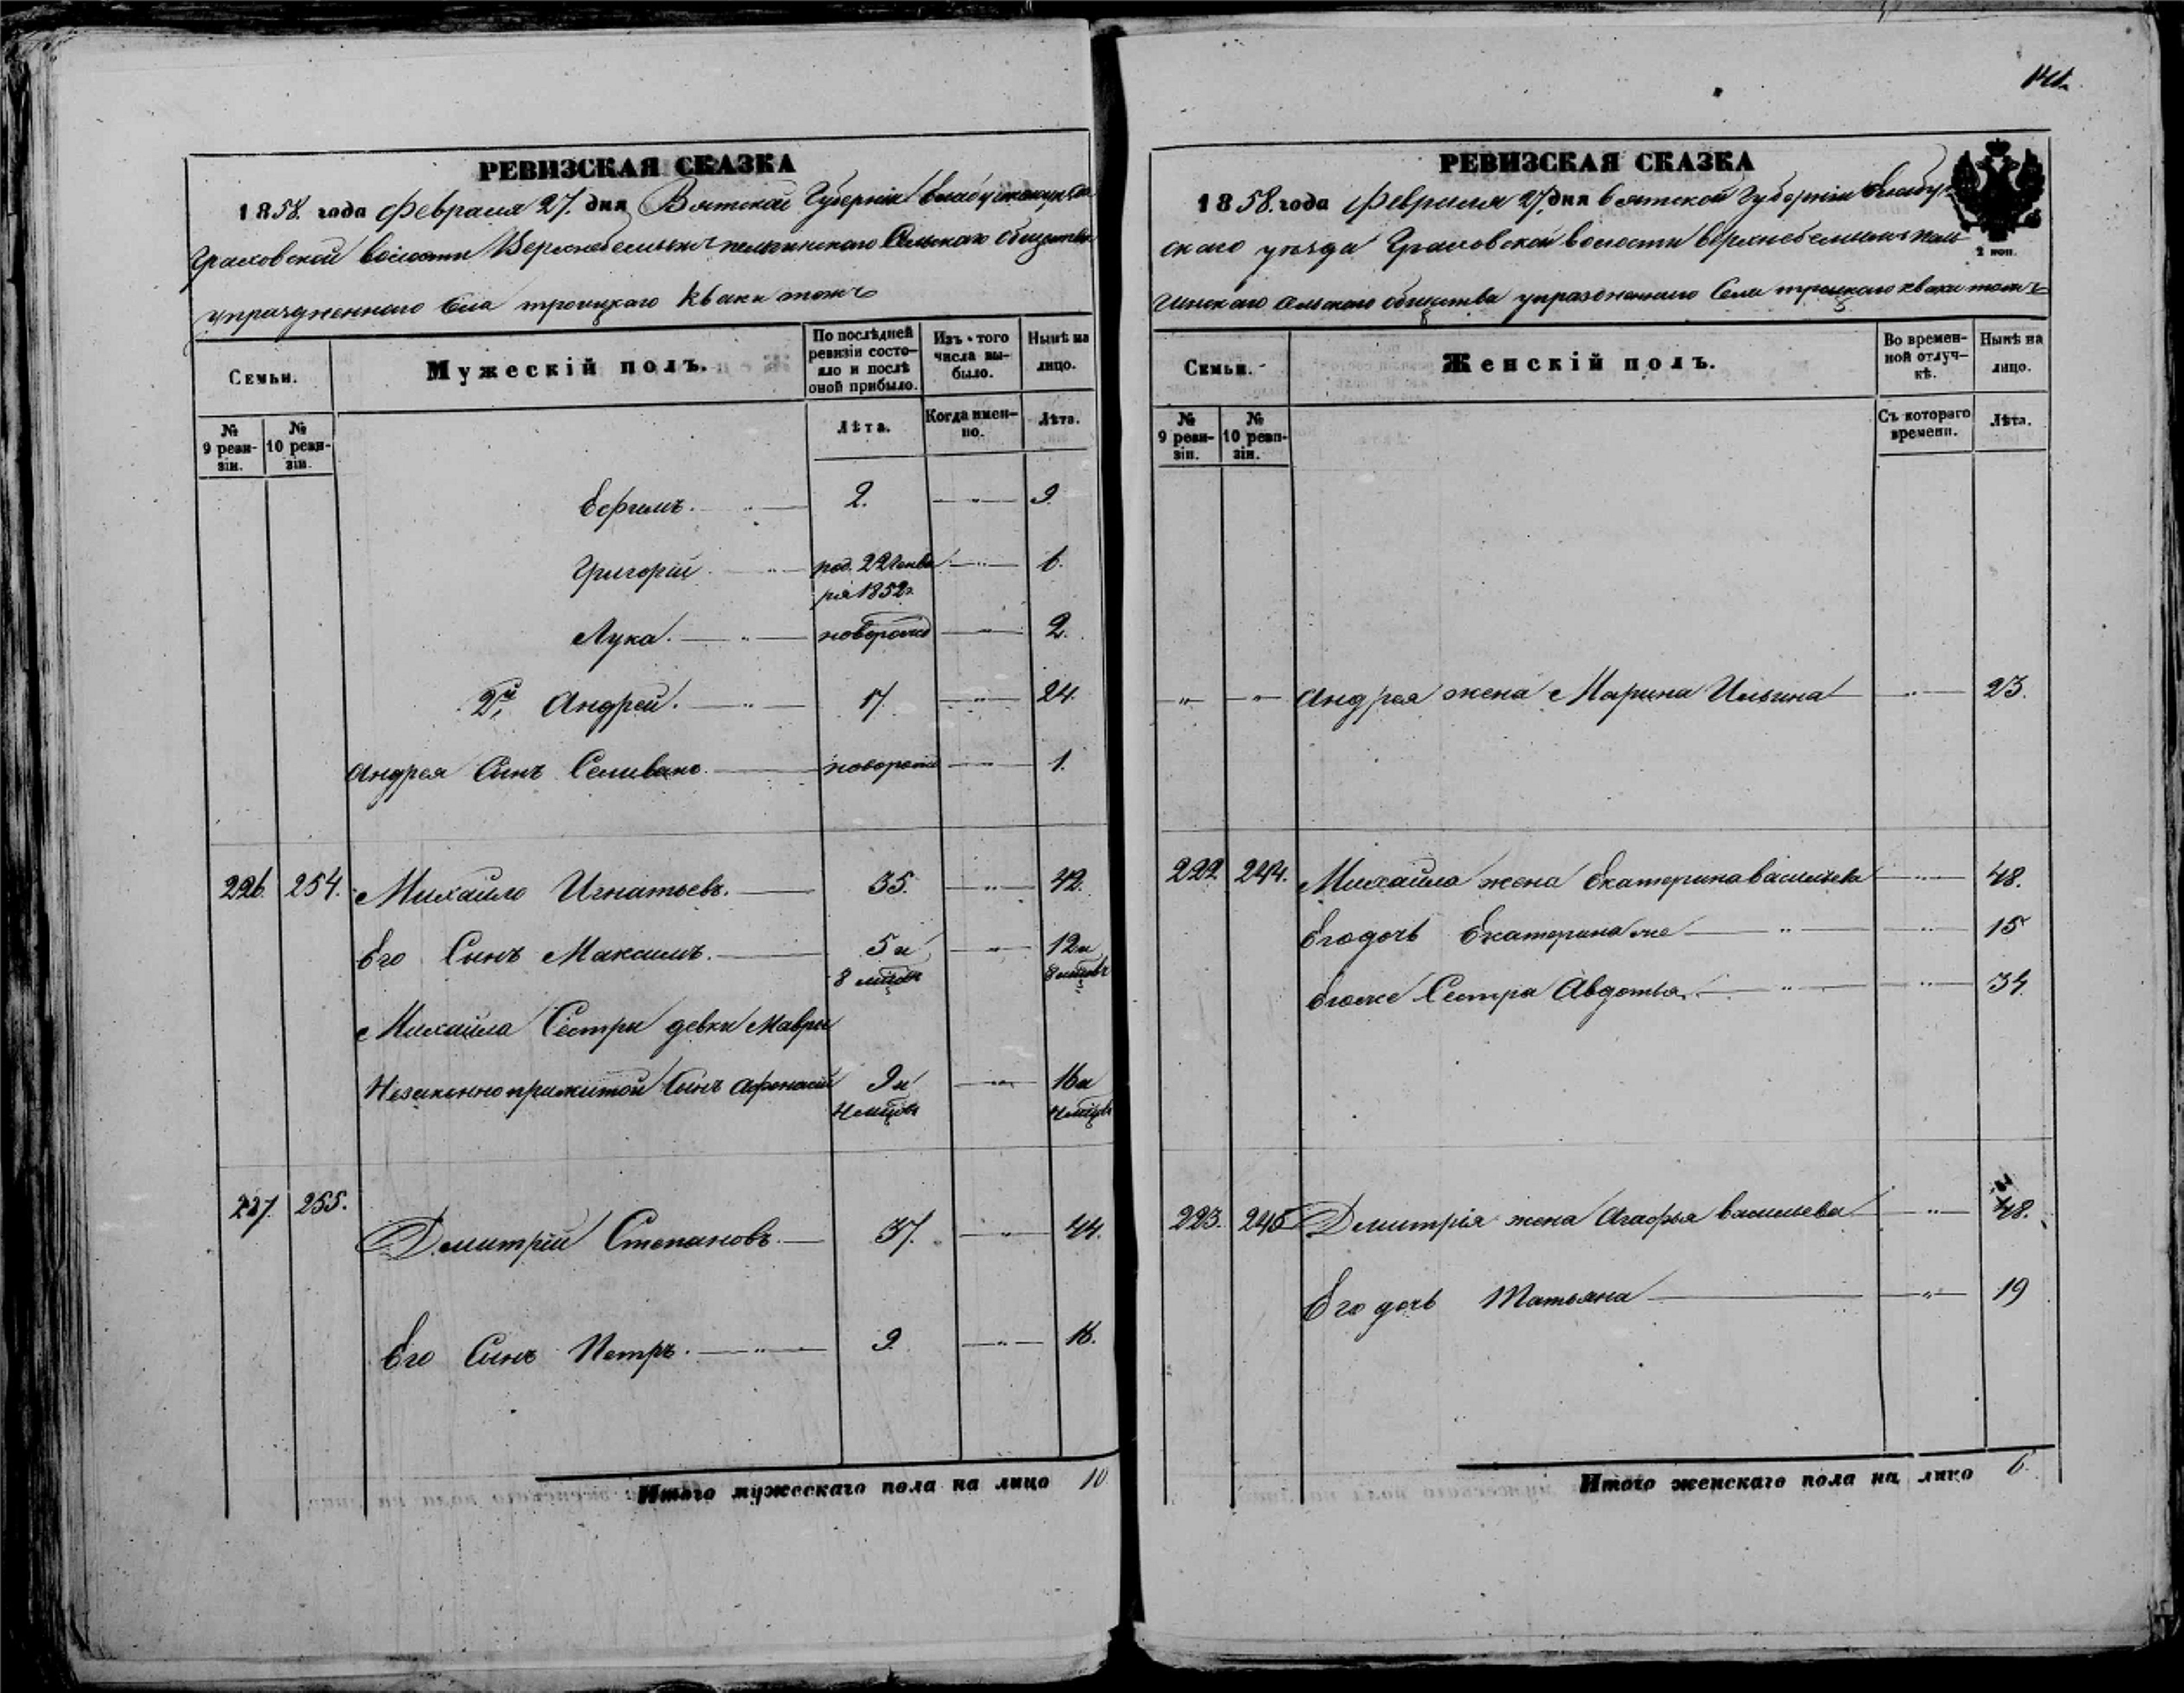 РЕВИЗСКАЯ СКАЗКА
1858. года Февраля 27. дня Вятской Губерніи
Граховской волости Сельскаго общества
упраздненнаго Села троицкаго
Семьи.
Мужескій полъ.
По послѣдней ревизіи состояло и послѣ оной прибыло.
Изъ того числа выбыло.
Нынѣ на лицо.
№ 9 ревизіи.
№ 10 ревизіи.
Лѣта.
Когда именно.
Лѣта.
Ефимъ. 2. 9.
Григорій род. 22 Генва 6.
ря 1852г.
Лука. новорожд 2.
2й Андрей. 17. 24.
Андрея Сынъ Селиванъ. новорожд 1.
226. 254. Михайло Игнатьевъ. 35. 42.
Его Сынъ Максимъ. 5 и 12 и
8 мцовъ 8 мцовъ
Михайла Сестры девки Мавры
Незаконноприжитой Сынъ Афонасій 9 и 16 и
4 мцовъ 4 мцовъ
227. 255.
Дмитрій Степановъ. 37. 44.
Его Сынъ Петръ. 9. 16.
Итого мужескаго пола на лицо 10
РЕВИЗСКАЯ СКАЗКА
1858. года Февраля 27. дня Вятской Губерніи Елабуж
скаго уезда Граховской волости
сельскаго общества упраздненнаго Села троицкаго
2 коп.
Семьи.
Женскій полъ.
Во временной отлучкѣ.
Нынѣ на лицо.
№ 9 ревизіи.
№ 10 ревизіи.
Съ котораго времени.
Лѣта.
Андрея жена Марина Ильина 23.
222 244. Михайла жена Екатерина Васильева 48.
Его дочь Екатерина же 15
Его же Сестра Авдотья. 34.
223. 245 Дмитрія жена Агафья Васильева 48.
Его дочь Татьяна 19
Итого женскаго пола на лицо 6.